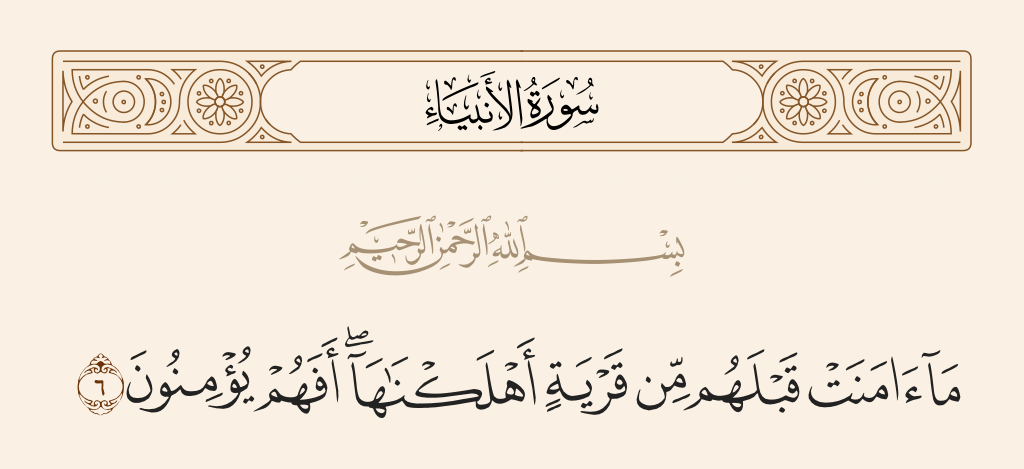 سُورَةُ الأَنبِيَاءِ
بِسْمِ ٱللَّهِ ٱلرَّحْمَٰنِ ٱلرَّحِيمِ
مَآ ءَامَنَتْ قَبْلَهُم مِّن قَرْيَةٍ أَهْلَكْنَٰهَآ ۖ أَفَهُمْ يُؤْمِنُونَ ٦